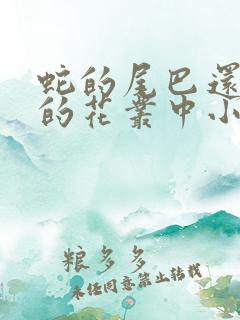 蛇的尾巴還
的花叢中小
粮多多
未经同意禁止转载